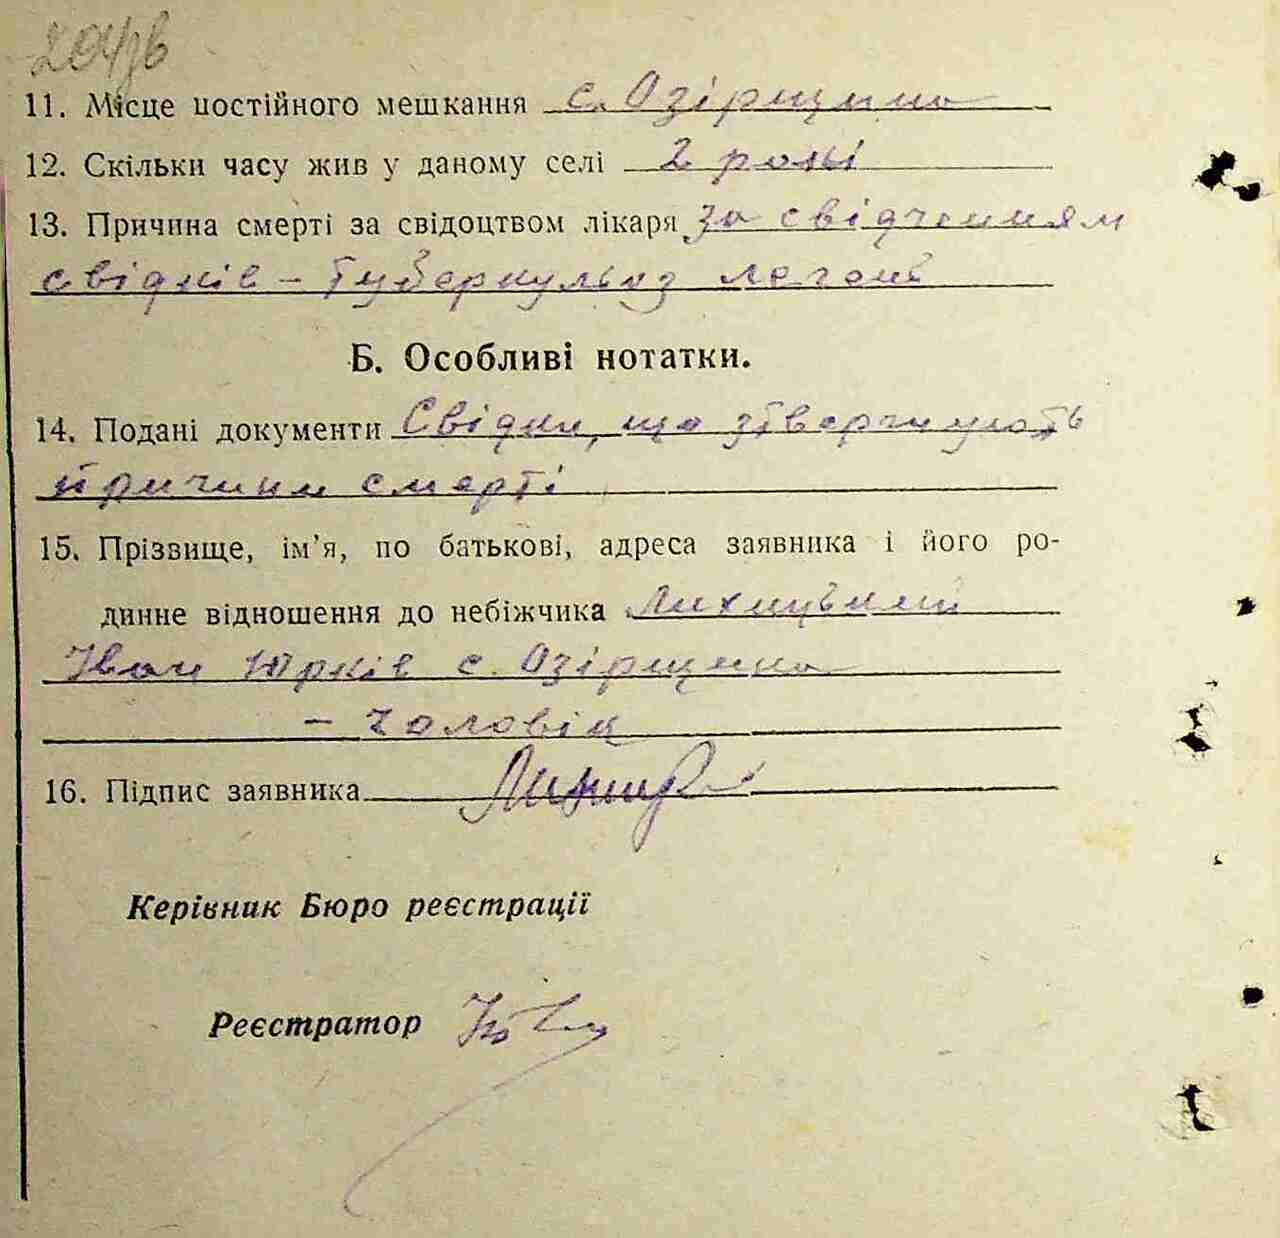 204зв
11. Місце постійного мешкання с. Озірщина
12. Скільки часу жив у даному селі 2 роки
13. Причина смерті за свідоцтвом лікаря За свідченням
свідків – Туберкульоз легень
Б. Особливі нотатки.
14. Подані документи Свідки, що
причини смерті
15. Прізвище, ім'я, по батькові, адреса заявника і його ро-
динне відношення до небіжчика
Іван Юрків с. Озірщина
– чоловік
16. Підпис заявника
Керівник Бюро реєстрації
Реєстратор